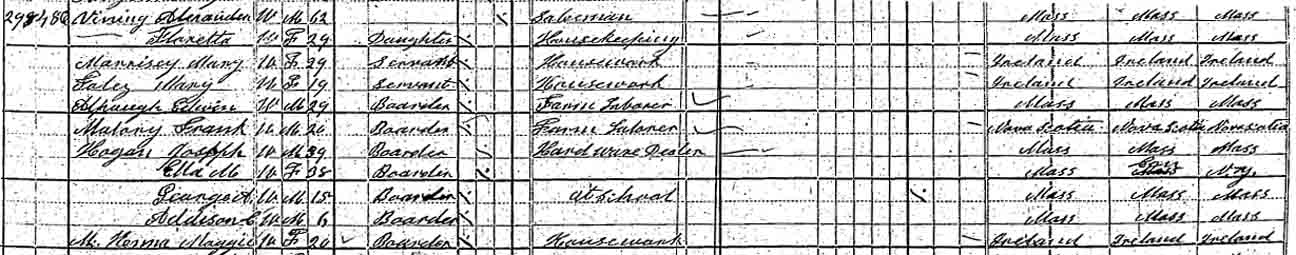 298 486 Vining Alexander W M 62 Salesman Mass Mass Mass
Floretta W F 29 Daughter Housekeeping Mass Mass Mass
Marrisey Mary W F 39 Servant Housework Ireland Ireland Ireland
Foley Mary W F 19 Servant Housework Ireland Ireland Ireland
Edwin W M 29 Boarder Farm Laborer Mass Mass Mass
Malony Frank W M 20 Boarder Farm Laborer Nova Scotia Nova Scotia Nova Scotia
Hogan Joseph W M 39 Boarder Hard Ware Dealer Mass Mass Mass
Ella M W F 38 Boarder Mass N.Y.
George A W M 15 Boarder At School Mass Mass Mass
Addison C W M 6 Boarder Mass Mass Mass
Maggie W F 20 Boarder Housework Ireland Ireland Ireland